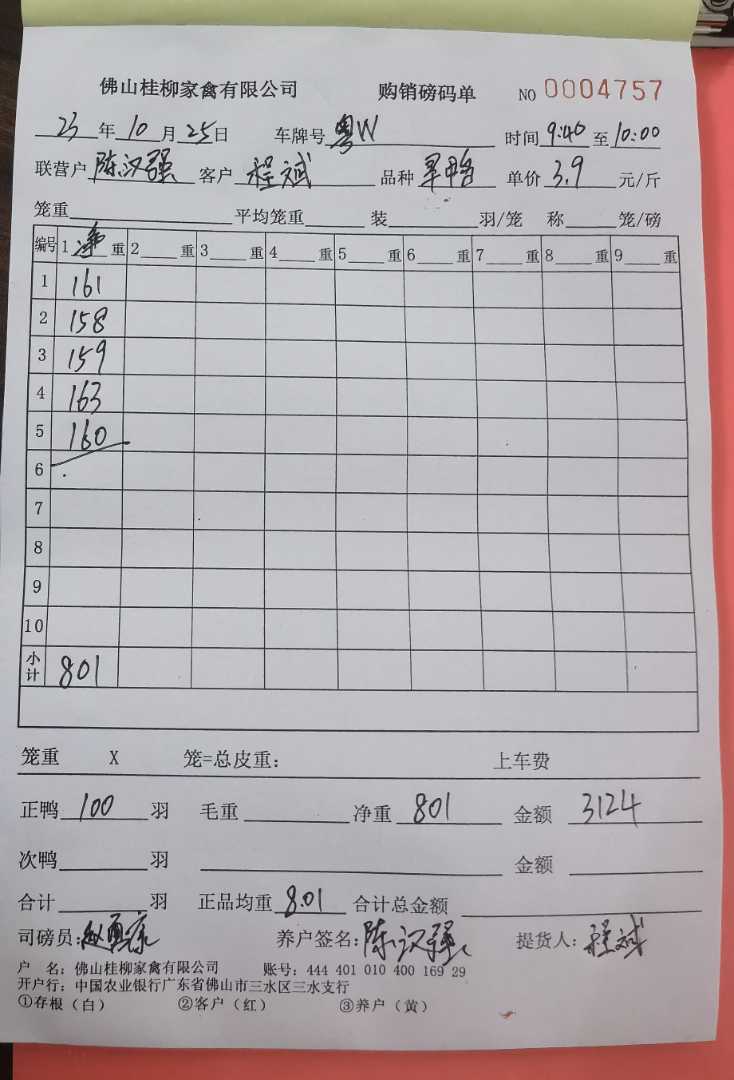 佛山桂柳家禽有限公司 购销磅码单 NO 0004757
23年10月25日 车牌号 粤W 时间 9:40 至 10:00
联营户 陈汉强 客户 程斌 品种 单价 3.9 元/斤
笼重 平均笼重 装 羽/笼 称 笼/磅
编号 1 净 重 2 重 3 重 4 重 5 重 6 重 7 重 8 重 9 重
1 161
2 158
3 159
4 163
5 160
6
7
8
9
10
小计 801
笼重 X 笼=总皮重: 上车费
正鸭 100 羽 毛重 净重 801 金额 3124
次鸭 羽 金额
合计 羽 正品均重 8.01 合计总金额
司磅员: 养户签名: 陈汉强 提货人: 程斌
户 名: 佛山桂柳家禽有限公司 账号: 444 401 010 400 169 29
开户行: 中国农业银行广东省佛山市三水区三水支行
①存根(白) ②客户(红) ③养户(黄)